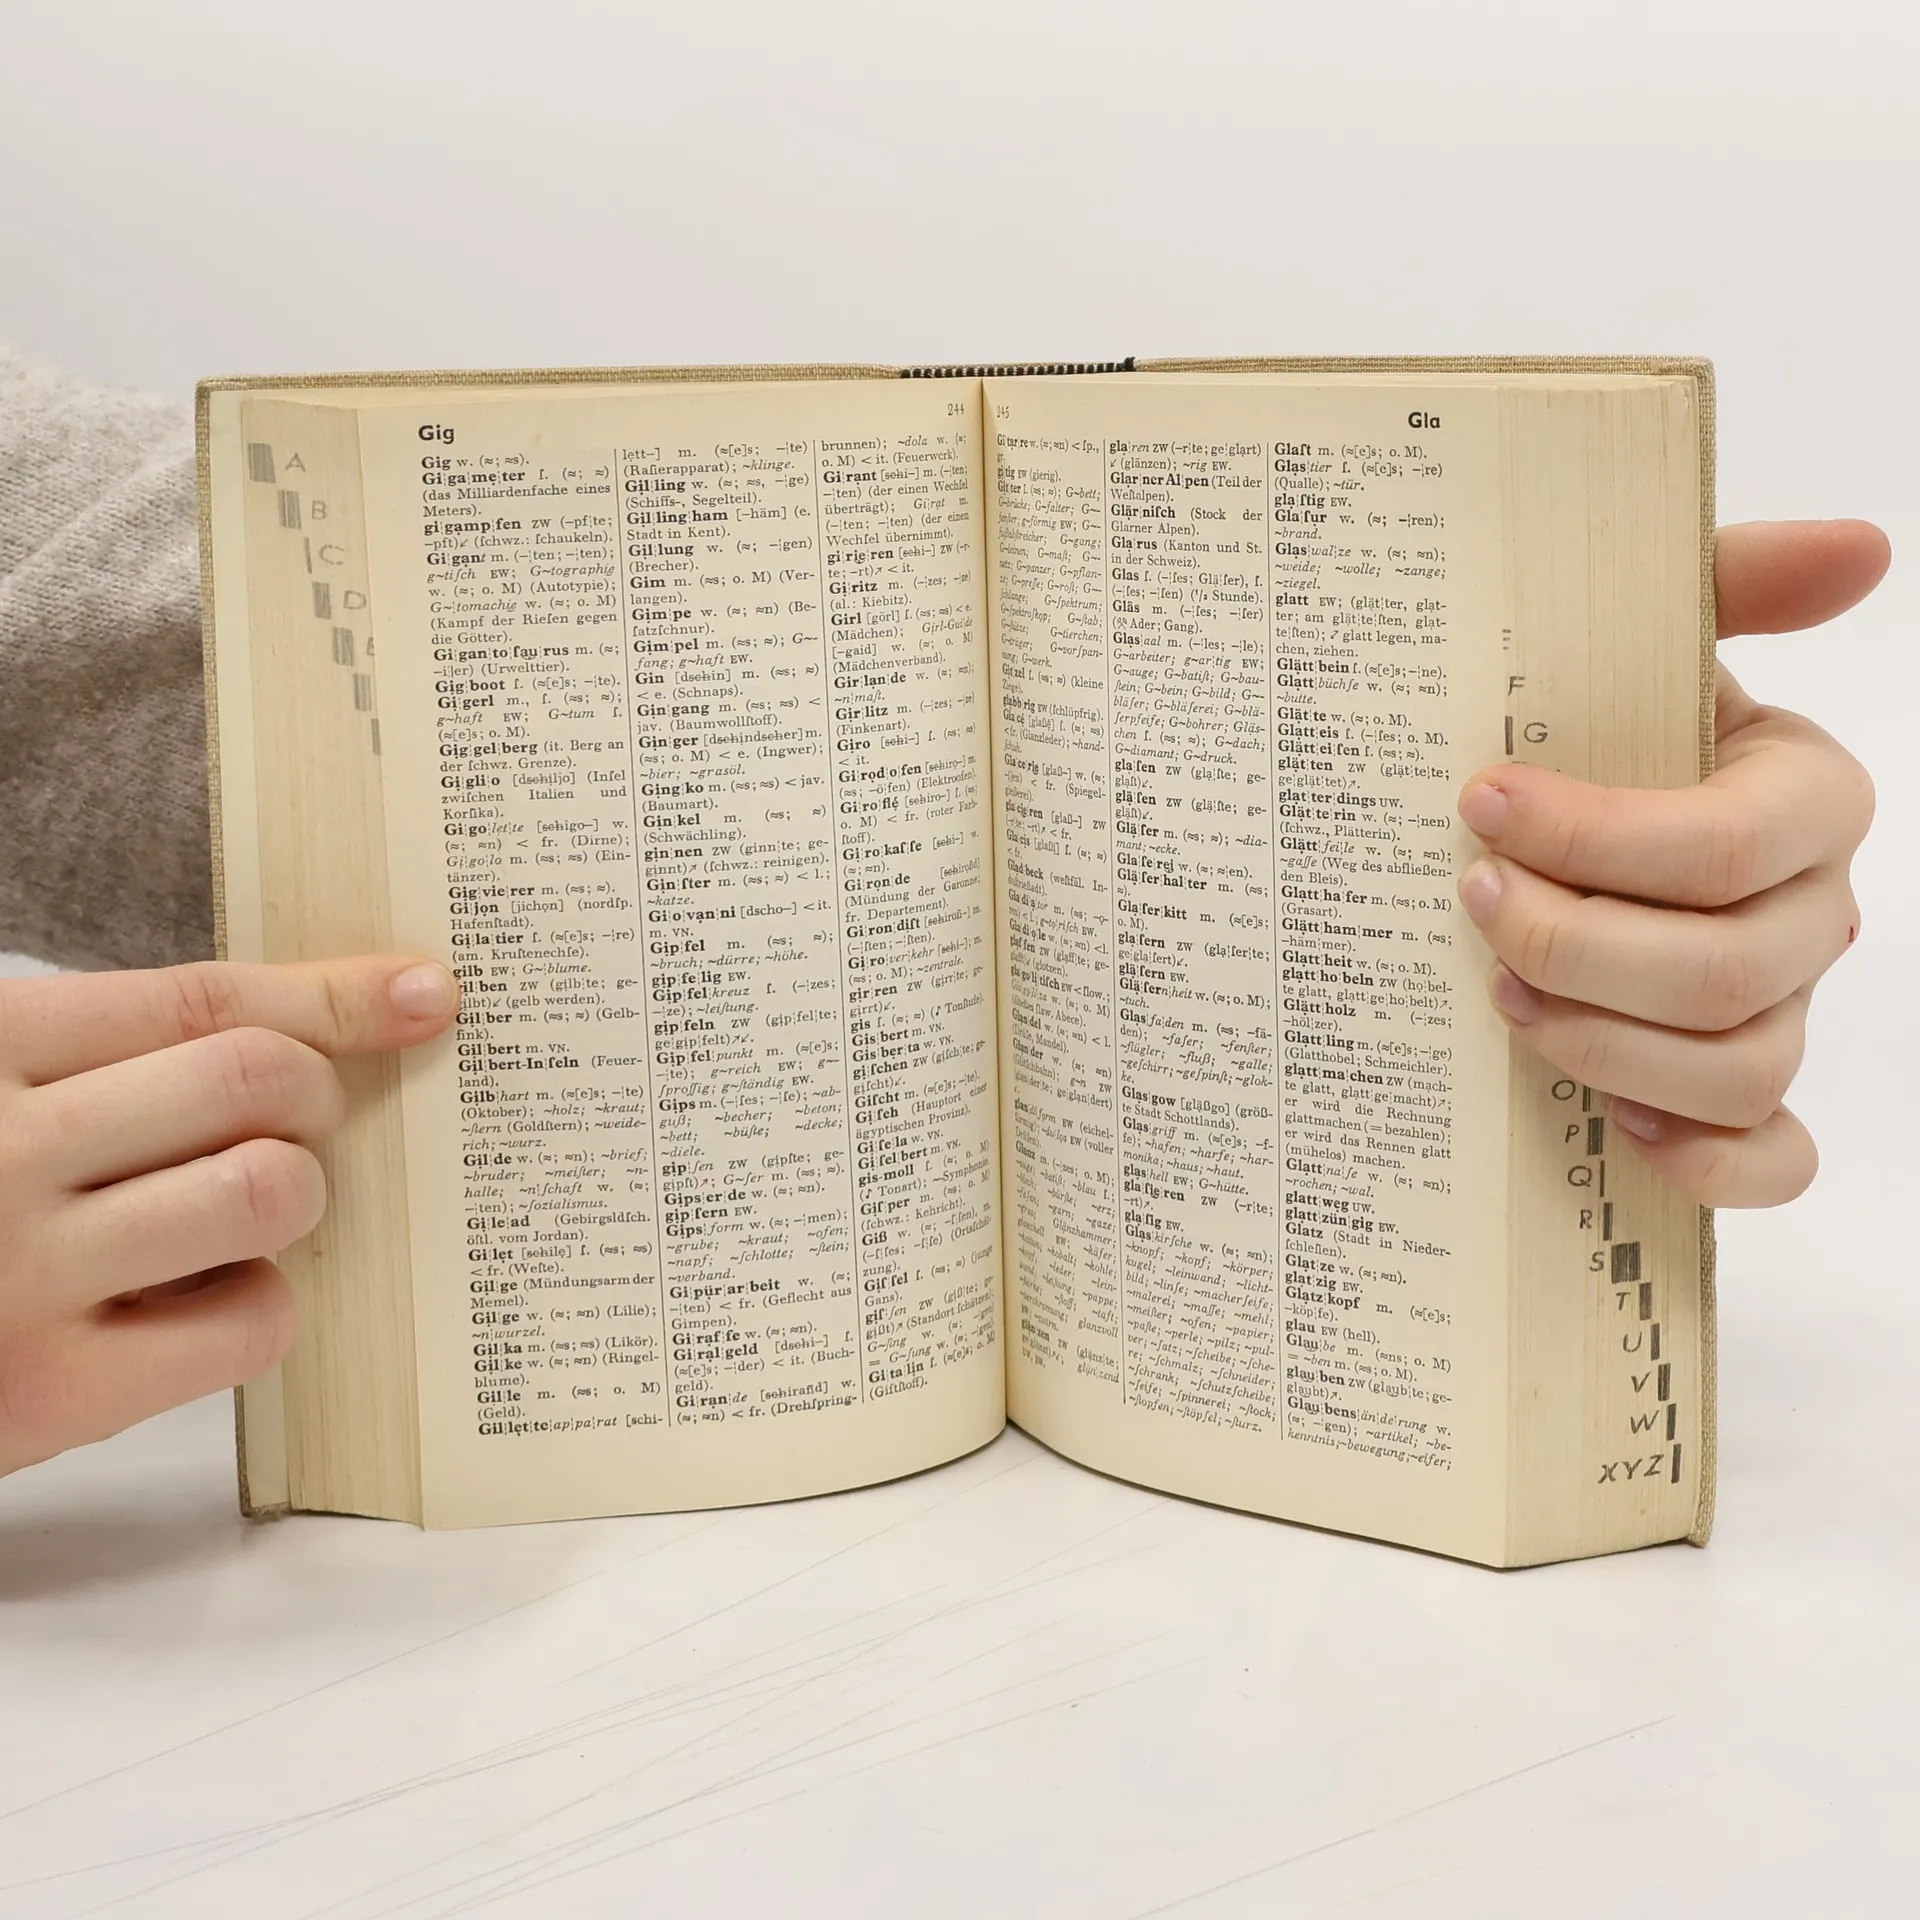 A
B
C
D
E
Gig
244
Gig w. (≈; ≈s).
Gi¦ga¦me¦ter ſ. (≈; ≈)
(das Milliardenfache eines
Meters).
gi¦gamp¦fen ZW (–pf¦te;
–pft)↙ (ſchwz.: ſchaukeln).
Gi¦gant m. (–¦ten; –¦ten);
g~tiſch EW; G~tographie
w. (≈; o. M) (Autotypie);
G~¦tomachie w. (≈; o. M)
(Kampf der Rieſen gegen
die Götter).
Gi¦gan¦to¦ſau¦rus m. (≈;
–i¦ler) (Urwelttier).
Gig¦boot ſ. (≈[e]s; –¦te).
Gi¦gerl m., ſ. (≈s; ≈);
g~haft EW; G~tum ſ.
(≈[e]s; o. M).
Gig¦gel¦berg (it. Berg an
der ſchwz. Grenze).
Gi¦gli¦o [dschiljo] (Inſel
zwiſchen Italien und
Korſika).
Gi¦go¦let¦te [schigo–] w.
(≈; ≈n) < fr. (Dirne);
Gi¦go¦lo m. (≈s; ≈s) (Ein-
tänzer).
Gig¦vie¦rer m. (≈s; ≈).
Gi¦jon [jichon] (nordſp.
Hafenſtadt).
Gi¦la¦tier ſ. (≈[e]s; –¦re)
(am. Kruſtenechſe).
gilb EW; G~¦blume.
ZW (gilb¦te; ge-
(gelb werden).
Gil¦ber m. (≈s; ≈) (Gelb-
fink).
Gil¦bert m. VN.
Gil¦bert-In¦ſeln (Feuer-
land).
Gilb¦hart m. (≈[e]s; –¦te)
(Oktober); ~holz; ~kraut;
~ſtern (Goldſtern); ~weide-
rich; ~wurz.
Gil¦de w. (≈; ≈n); ~brief;
~bruder; ~meiſter; ~n-
halle; ~n¦ſchaft w. (≈;
–¦ten); ~ſozialismus.
Gi¦le¦ad (Gebirgsldſch.
öſtl. vom Jordan).
Gi¦let [schile] ſ. (≈s; ≈s)
< fr. (Weſte).
Gil¦ge (Mündungsarm der
Memel).
Gil¦ge w. (≈; ≈n) (Lilie);
~n¦wurzel.
Gil¦ka m. (≈s; ≈s) (Likör).
Gil¦ke w. (≈; ≈n) (Ringel-
blume).
Gil¦le m. (≈s; o. M)
(Geld).
Gil¦let¦te¦ap¦pa¦rat [schi-
lett–] m. (≈[e]s; –¦te)
(Raſierapparat); ~klinge.
Gil¦ling w. (≈; ≈s, –¦ge)
(Schiffs-, Segelteil).
Gil¦ling¦ham [–häm] (e.
Stadt in Kent).
Gil¦lung w. (≈; –¦gen)
(Brecher).
Gim m. (≈s; o. M) (Ver-
langen).
Gim¦pe w. (≈; ≈n) (Be-
ſatzſchnur).
Gim¦pel m. (≈s; ≈); G~-
fang; g~haft EW.
Gin [dschin] m. (≈s; ≈s)
< e. (Schnaps).
Gin¦gang m. (≈s; ≈s) <
jav. (Baumwollſtoff).
Gin¦ger [dschindscher] m.
(≈s; o. M) < e. (Ingwer);
~bier; ~grasöl.
Ging¦ko m. (≈s; ≈s) < jav.
(Baumart).
Gin¦kel m. (≈s; ≈)
(Schwächling).
gin¦nen ZW (ginn¦te; ge-
ginnt)↗ (ſchwz.: reinigen).
Gin¦ſter m. (≈s; ≈) < l.;
~katze.
Gi¦o¦van¦ni [dscho–] < it.
m. VN.
Gip¦fel m. (≈s; ≈);
~bruch; ~dürre; ~höhe.
gip¦fe¦lig EW.
Gip¦fel¦kreuz ſ. (–¦zes;
–¦ze); ~leiſtung.
gip¦feln ZW (gip¦fel¦te;
ge¦gip¦felt)↗↙.
Gip¦fel¦punkt m. (≈[e]s;
–¦te); g~reich EW; g~-
ſproſſig; g~ſtändig EW.
Gips m. (–¦ſes; –¦ſe); ~ab-
guß; ~becher; ~beton;
~bett; ~büſte; ~decke;
~diele.
gip¦ſen ZW (gipſte; ge-
gipſt)↗; G~ſer m. (≈s; ≈).
Gips¦er¦de w. (≈; ≈n).
gip¦ſern EW.
Gips¦form w. (≈; –¦men);
~grube; ~kraut; ~ofen;
~napf; ~ſchlotte; ~ſtein;
~verband.
Gi¦pür¦ar¦beit w. (≈;
–¦ten) < fr. (Geflecht aus
Gimpen).
Gi¦raf¦fe w. (≈; ≈n).
Gi¦ral¦geld [dschi–] ſ.
(≈[e]s; –¦der) < it. (Buch-
geld).
Gi¦ran¦de [schirañd] w.
(≈; ≈n) < fr. (Drehſpring-
brunnen); ~dola w. (≈;
o. M) < it. (Feuerwerk).
Gi¦rant [schi–] m. (–¦ten;
–¦ten) (der einen Wechſel
überträgt); Gi¦rat m.
(–¦ten; –¦ten) (der einen
Wechſel übernimmt).
gi¦rie¦ren [schi–] ZW (–r-
te; –rt)↗ < it.
Gi¦ritz m. (–¦zes; –¦ze)
(al.: Kiebitz).
Girl [görl] ſ. (≈s; ≈s) < e.
(Mädchen); Girl-Gui¦de
[–gaid] w. (≈; o. M)
(Mädchenverband).
Gir¦lan¦de w. (≈; ≈n);
~n¦maſt.
Gir¦litz m. (–¦zes; –¦ze)
(Finkenart).
Giro [schi–] ſ. (≈s; ≈s)
< it.
Gi¦rod¦o¦fen [schiro–] m.
(≈s; –ö¦fen) (Elektroofen).
Gi¦ro¦flé [schiro–] ſ. (≈s;
o. M) < fr. (roter Farb-
ſtoff).
Gi¦ro¦kaſ¦ſe [schi–] w.
(≈; ≈n).
Gi¦ron¦de [schiroñd]
(Mündung der Garonne;
fr. Departement).
Gi¦ron¦diſt [schiroñ–] m.
(–¦ſten; –¦ſten).
Gi¦ro¦ver¦kehr [schi–]; m.
(≈s; o. M); ~zentrale.
gir¦ren ZW (girr¦te; ge-
girrt)↙.
gis ſ. (≈; ≈) (♪ Tonſtufe).
Gis¦bert m. VN.
Gis¦ber¦ta w. VN.
gi¦ſchen ZW (giſch¦te; ge-
giſcht)↙.
Giſcht m. (≈[e]s; –¦te).
Gi¦ſeh (Hauptort einer
ägyptiſchen Provinz).
Gi¦ſe¦la w. VN.
Gi¦ſel¦bert m. VN.
gis-moll ſ. (≈; o. M)
(♪ Tonart); ~-Symphonie
Giſ¦per m. (≈s; o. M)
(ſchwz.: Kehricht).
Giß w. (≈; –¦ſſen), m.
(–¦ſſes; –¦ſſe) (Ortsſchät-
zung).
Giſ¦ſel ſ. (≈s; ≈) (junge
Gans).
giſ¦ſen ZW (giß¦te; ge-
gißt)↗ (Standort ſchätzen);
G~ſing w. (≈; –¦gen)
= G~ſung w. (≈; –¦gen).
Gi¦ta¦lin ſ. (≈[e]s; o. M)
(Giftſtoff).
245
Gla
Gi¦tar¦re w. (≈; ≈n) < ſp.,
gr.
gi¦tig EW (gierig).
Git¦ter ſ. (≈s; ≈); G~bett;
G~brücke; G~falter; G~-
fenſter; g~förmig EW; G~-
fußballſtreicher; G~gang;
G~leinen; G~maſt; G~-
netz; G~panzer; G~pflan-
ze; G~preſſe; G~roſt; G~-
ſchlange; G~ſpektrum;
G~ſpektroſkop; G~ſtab;
G~ſtütze; G~tierchen;
G~träger; G~vorſpan-
nung; G~werk.
Git¦zel ſ. (≈s; ≈) (kleine
Ziege).
glabb¦rig EW (ſchlüpfrig).
Gla¦cé [glaßé] ſ. (≈s; ≈s)
< fr. (Glanzleder); ~hand-
ſchuh.
Gla¦ce¦rie [glaß–] w. (≈;
–¦en) < fr. (Spiegel-
gießerei).
gla¦cie¦ren [glaß–] ZW
(–r¦te; –rt)↗ < fr.
Gla¦cis [glaßi] ſ. (≈; ≈)
< fr.
Glad¦beck (weſtfäl. In-
duſtrieſtadt).
Gla¦di¦a¦tor m. (≈s; –o-
ren) < l.; g~to¦riſch EW.
Gla¦di¦o¦le w. (≈; ≈n) < l.
glaf¦fen ZW (glaff¦te; ge-
glafft)↙ (glotzen).
gla¦go¦li¦tiſch EW < ſlow.;
Gla¦go¦li¦za w. (≈; o. M)
(älteſtes ſlaw. Abece).
Glan¦del w. (≈; ≈n) < l.
(Drüſe, Mandel).
Glan¦der w. (≈; ≈n)
(Gleitſchbahn); g~n ZW
(glan¦der¦te; ge¦glan¦dert)
glan¦di¦form EW (eichel-
förmig); ~du¦lös EW (voller
Drüſen).
Glanz m. (–¦zes; o. M);
glän¦zen ZW (glänz¦te;
gla¦ren ZW (–r¦te; ge¦glart)
↙ (glänzen); ~rig EW.
Glar¦ner Al¦pen (Teil der
Weſtalpen).
Glär¦niſch (Stock der
Glarner Alpen).
Gla¦rus (Kanton und St.
in der Schweiz).
Glas ſ. (–¦ſes; Glä¦ſer), ſ.
(–¦ſes; –¦ſen) (¹/₂ Stunde).
Gläs m. (–¦ſes; –¦ſer)
(⚒ Ader; Gang).
Glas¦aal m. (–¦les; –¦le);
G~arbeiter; g~ar¦tig EW;
G~auge; G~batiſt; G~bau-
ſtein; G~bein; G~bild; G~-
bläſer; G~bläſerei; G~blä-
ſerpfeife; G~bohrer; Gläs-
chen ſ. (≈s; ≈); G~dach;
G~diamant; G~druck.
gla¦ſen ZW (gla¦ſte; ge-
glaſt)↙.
glä¦ſen ZW (glä¦ſte; ge-
gläſt)↙.
Glä¦ſer m. (≈s; ≈); ~dia-
mant; ~ecke.
Gla¦ſe¦rei w. (≈; ≈en).
Glä¦ſer¦hal¦ter m. (≈s;
≈).
Gla¦ſer¦kitt m. (≈[e]s;
o. M).
gla¦ſern ZW (gla¦ſer¦te;
ge¦gla¦ſert)↙.
glä¦ſern EW.
Glä¦ſern¦heit w. (≈; o. M);
~tuch.
Glas¦fa¦den m. (≈s; –fä-
den); ~faſer; ~fenſter;
~flügler; ~fluß; ~galle;
~geſchirr; ~geſpinſt; ~glok-
ke.
Glas¦gow [gläßgo] (größ-
te Stadt Schottlands).
Glas¦griff m. (≈[e]s; –f-
fe); ~hafen; ~harfe; ~har-
monika; ~haus; ~haut.
glas¦hell EW; G~hütte.
gla¦ſie¦ren ZW (–r¦te;
–rt)↗.
gla¦ſig EW.
Glas¦kirſche w. (≈; ≈n);
~knopf; ~kopf; ~körper;
~kugel; ~leinwand; ~licht-
bild; ~linſe; ~macherſeife;
~malerei; ~maſſe; ~mehl;
~meißer; ~ofen; ~papier;
~paſte; ~perle; ~pilz; ~pul-
ver; ~ſatz; ~ſcheibe; ~ſche-
re; ~ſchmalz; ~ſchneider;
~ſchrank; ~ſchutzſcheibe;
~ſeife; ~ſpinnerei; ~ſtock;
~ſtopfen; ~ſtöpſel; ~ſturz.
Glaſt m. (≈[e]s; o. M).
Glas¦tier ſ. (≈[e]s; –¦re)
(Qualle); ~tür.
gla¦ſtig EW.
Gla¦ſur w. (≈; –¦ren);
~brand.
Glas¦wal¦ze w. (≈; ≈n);
~weide; ~wolle; ~zange;
~ziegel.
glatt EW; (glät¦ter, glat-
ter; am glät¦te¦ſten, glat-
te¦ſten); ⤤ glatt legen, ma-
chen, ziehen.
Glätt¦bein ſ. (≈[e]s; –¦ne).
Glatt¦büchſe w. (≈; ≈n);
~butte.
Glät¦te w. (≈; o. M).
Glatt¦eis ſ. (–¦ſes; o. M).
Glätt¦ei¦ſen ſ. (≈s; ≈).
glät¦ten ZW (glät¦te¦te;
ge¦glät¦tet)↗.
glat¦ter¦dings UW.
Glät¦te¦rin w. (≈; –¦nen)
(ſchwz., Plätterin).
Glätt¦fei¦le w. (≈; ≈n);
~gaſſe (Weg des abfließen-
den Bleis).
Glatt¦ha¦fer m. (≈s; o. M)
(Grasart).
Glätt¦ham¦mer m. (≈s;
–häm¦mer).
Glatt¦heit w. (≈; o. M).
glatt¦ho¦beln ZW (ho¦bel-
te glatt, glatt¦ge¦ho¦belt)↗.
Glätt¦holz m. (–¦zes;
–höl¦zer).
Glatt¦ling m. (≈[e]s; –¦ge)
(Glatthobel; Schmeichler).
glatt¦ma¦chen ZW (mach-
te glatt, glatt¦ge¦macht)↗;
er wird die Rechnung
glattmachen (= bezahlen);
er wird das Rennen glatt
(mühelos) machen.
Glatt¦na¦ſe w. (≈; ≈n);
~rochen; ~wal.
glatt¦weg UW.
glatt¦zün¦gig EW.
Glatz (Stadt in Nieder-
ſchleſien).
Glat¦ze w. (≈; ≈n).
glat¦zig EW.
Glatz¦kopf m. (≈[e]s;
–köp¦fe).
glau EW (hell).
Glau¦be m. (≈ns; o. M)
= ~ben m. (≈s; o. M).
glau¦ben ZW (glaub¦te; ge-
glaubt)↗.
Glau¦bens¦än¦de¦rung w.
(≈; –¦gen); ~artikel; ~be-
kenntnis; ~bewegung; ~eifer;
F
G
O
P
Q
R
S
T
U
V
W
XYZ